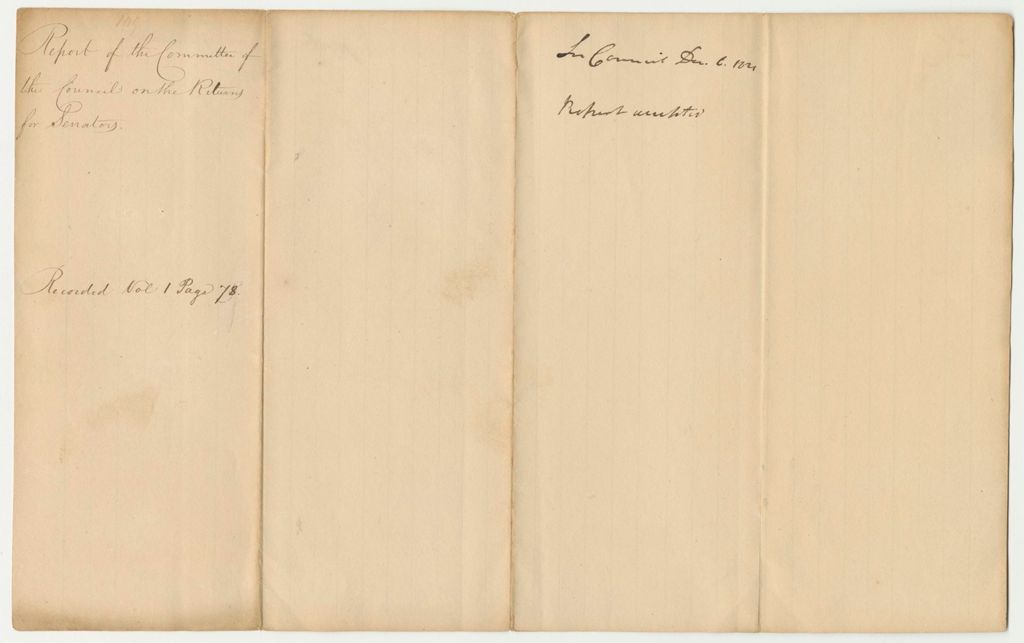 Report of the Committee of
the Council on the Returns
for Senators.
Recorded Vol 1 Page 78.
In Council Dec. 6. 1821
Report accepted